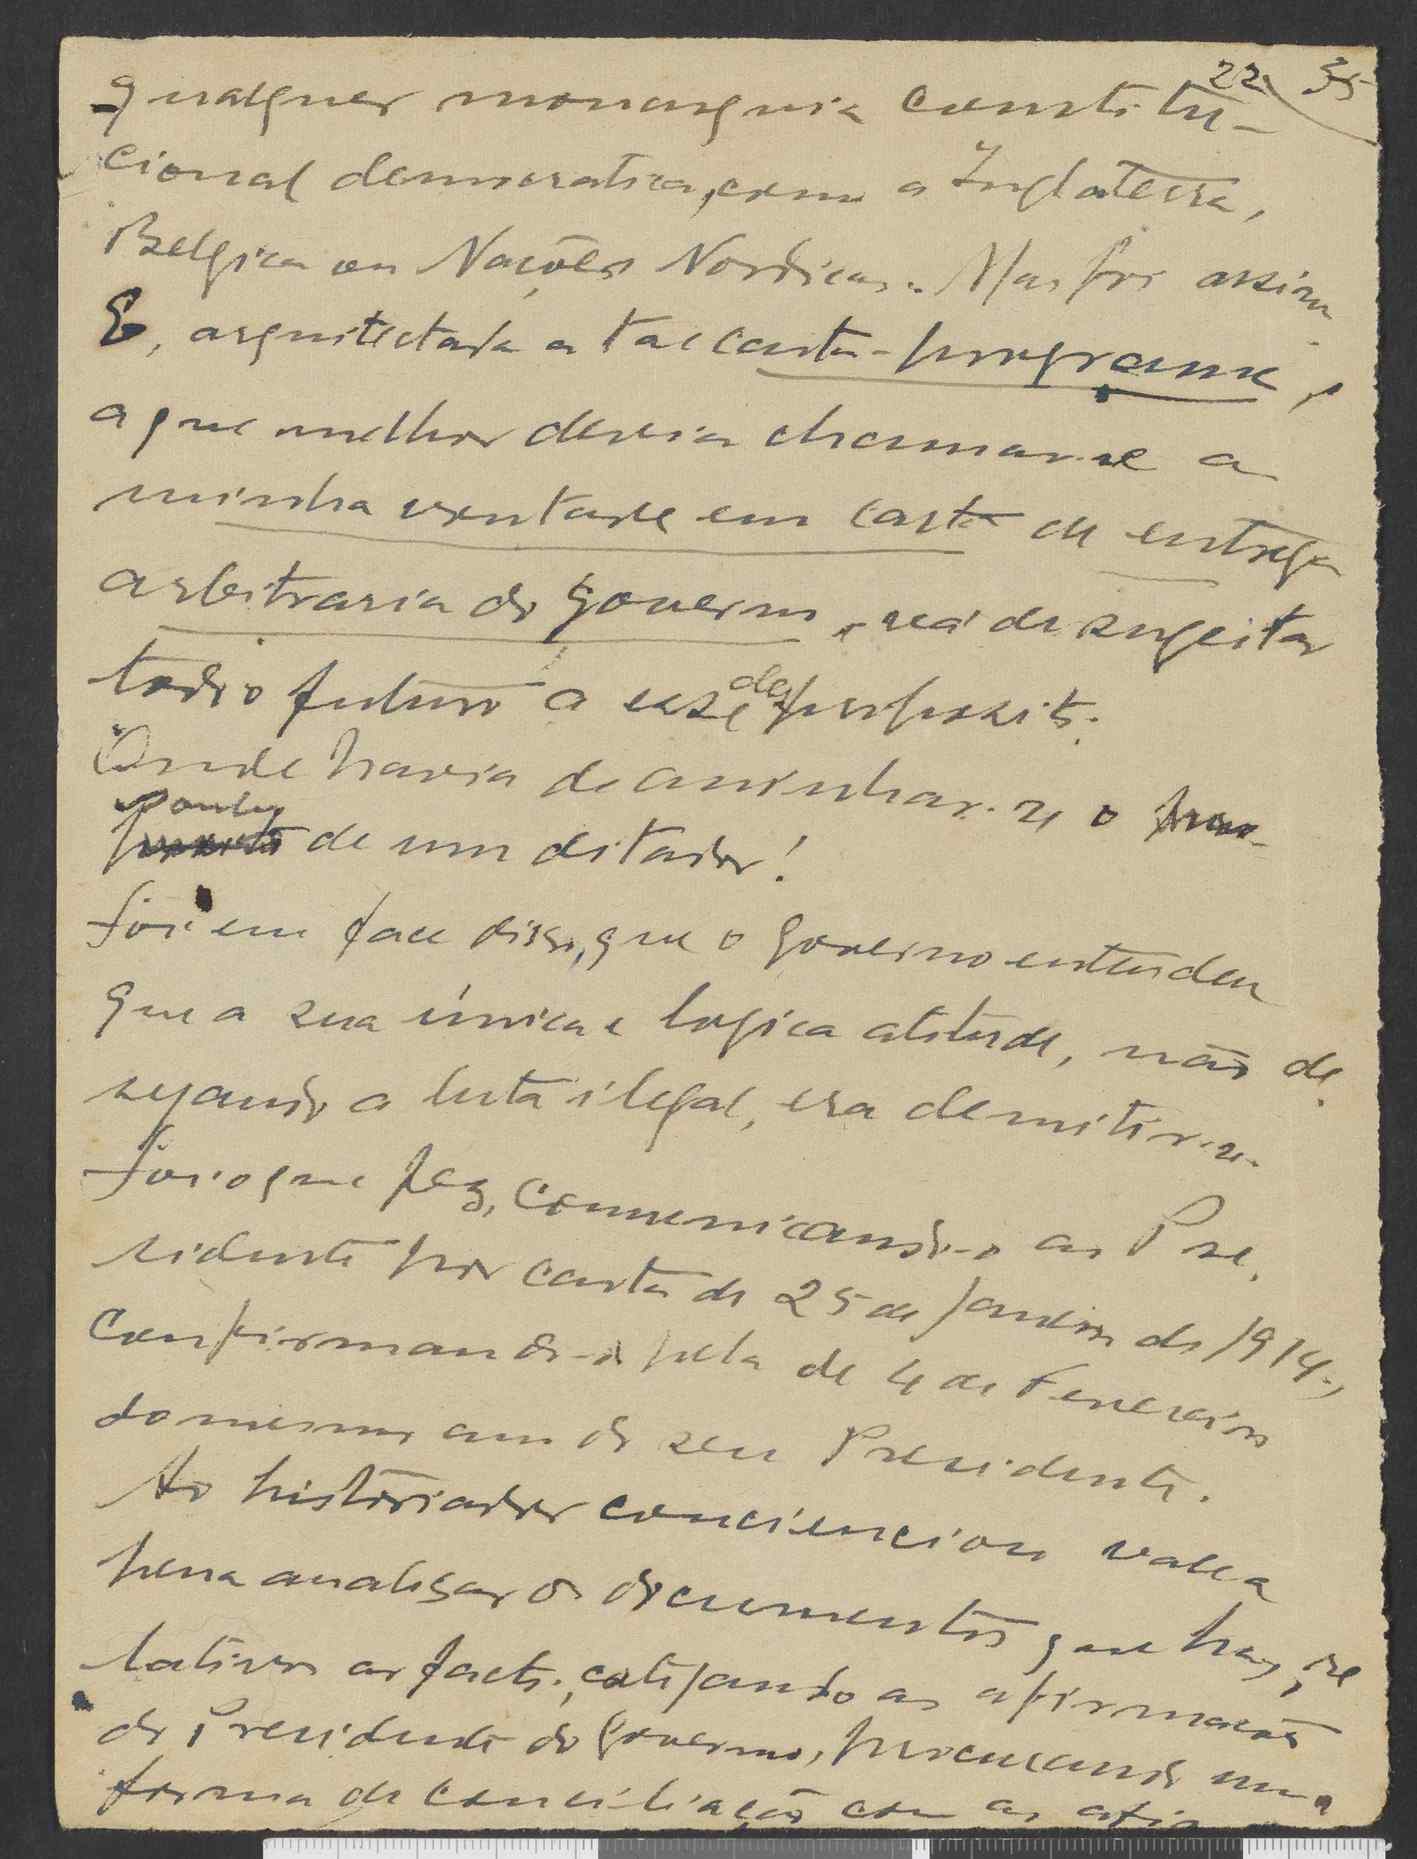 22 35
qualquer monarquia constitu-
cional democratica, como a Inglaterra,
Belgica ou Nações Nordicas. Mas foi assim
E, arquitectada a tal carta-programa,
a que melhor devia chamar-se a
minha vontade em carta de entrega
arbitraria do governo, vá de sugeitar
todo o futuro a esse proposito.
Onde havia de aninhar-se o
de um ditador!
Foi em face disso, que o governo entendeu
que a sua única e logica atitude, não de-
sejando a luta ilegal, era demitir-se.
Foi o que fez, comunicando-o ao Pre-
sidente por carta de 25 de Janeiro de 1914,
confirmando-o pela de 4 de Fevereiro
do mesmo ano do seu Presidente.
Ao historiador consciencioso valea
pena analisar os documentos que haja, re
lativos ao facto, cotejando as afirmações
do Presidente do Governo, procurando uma
forma de conciliação com as